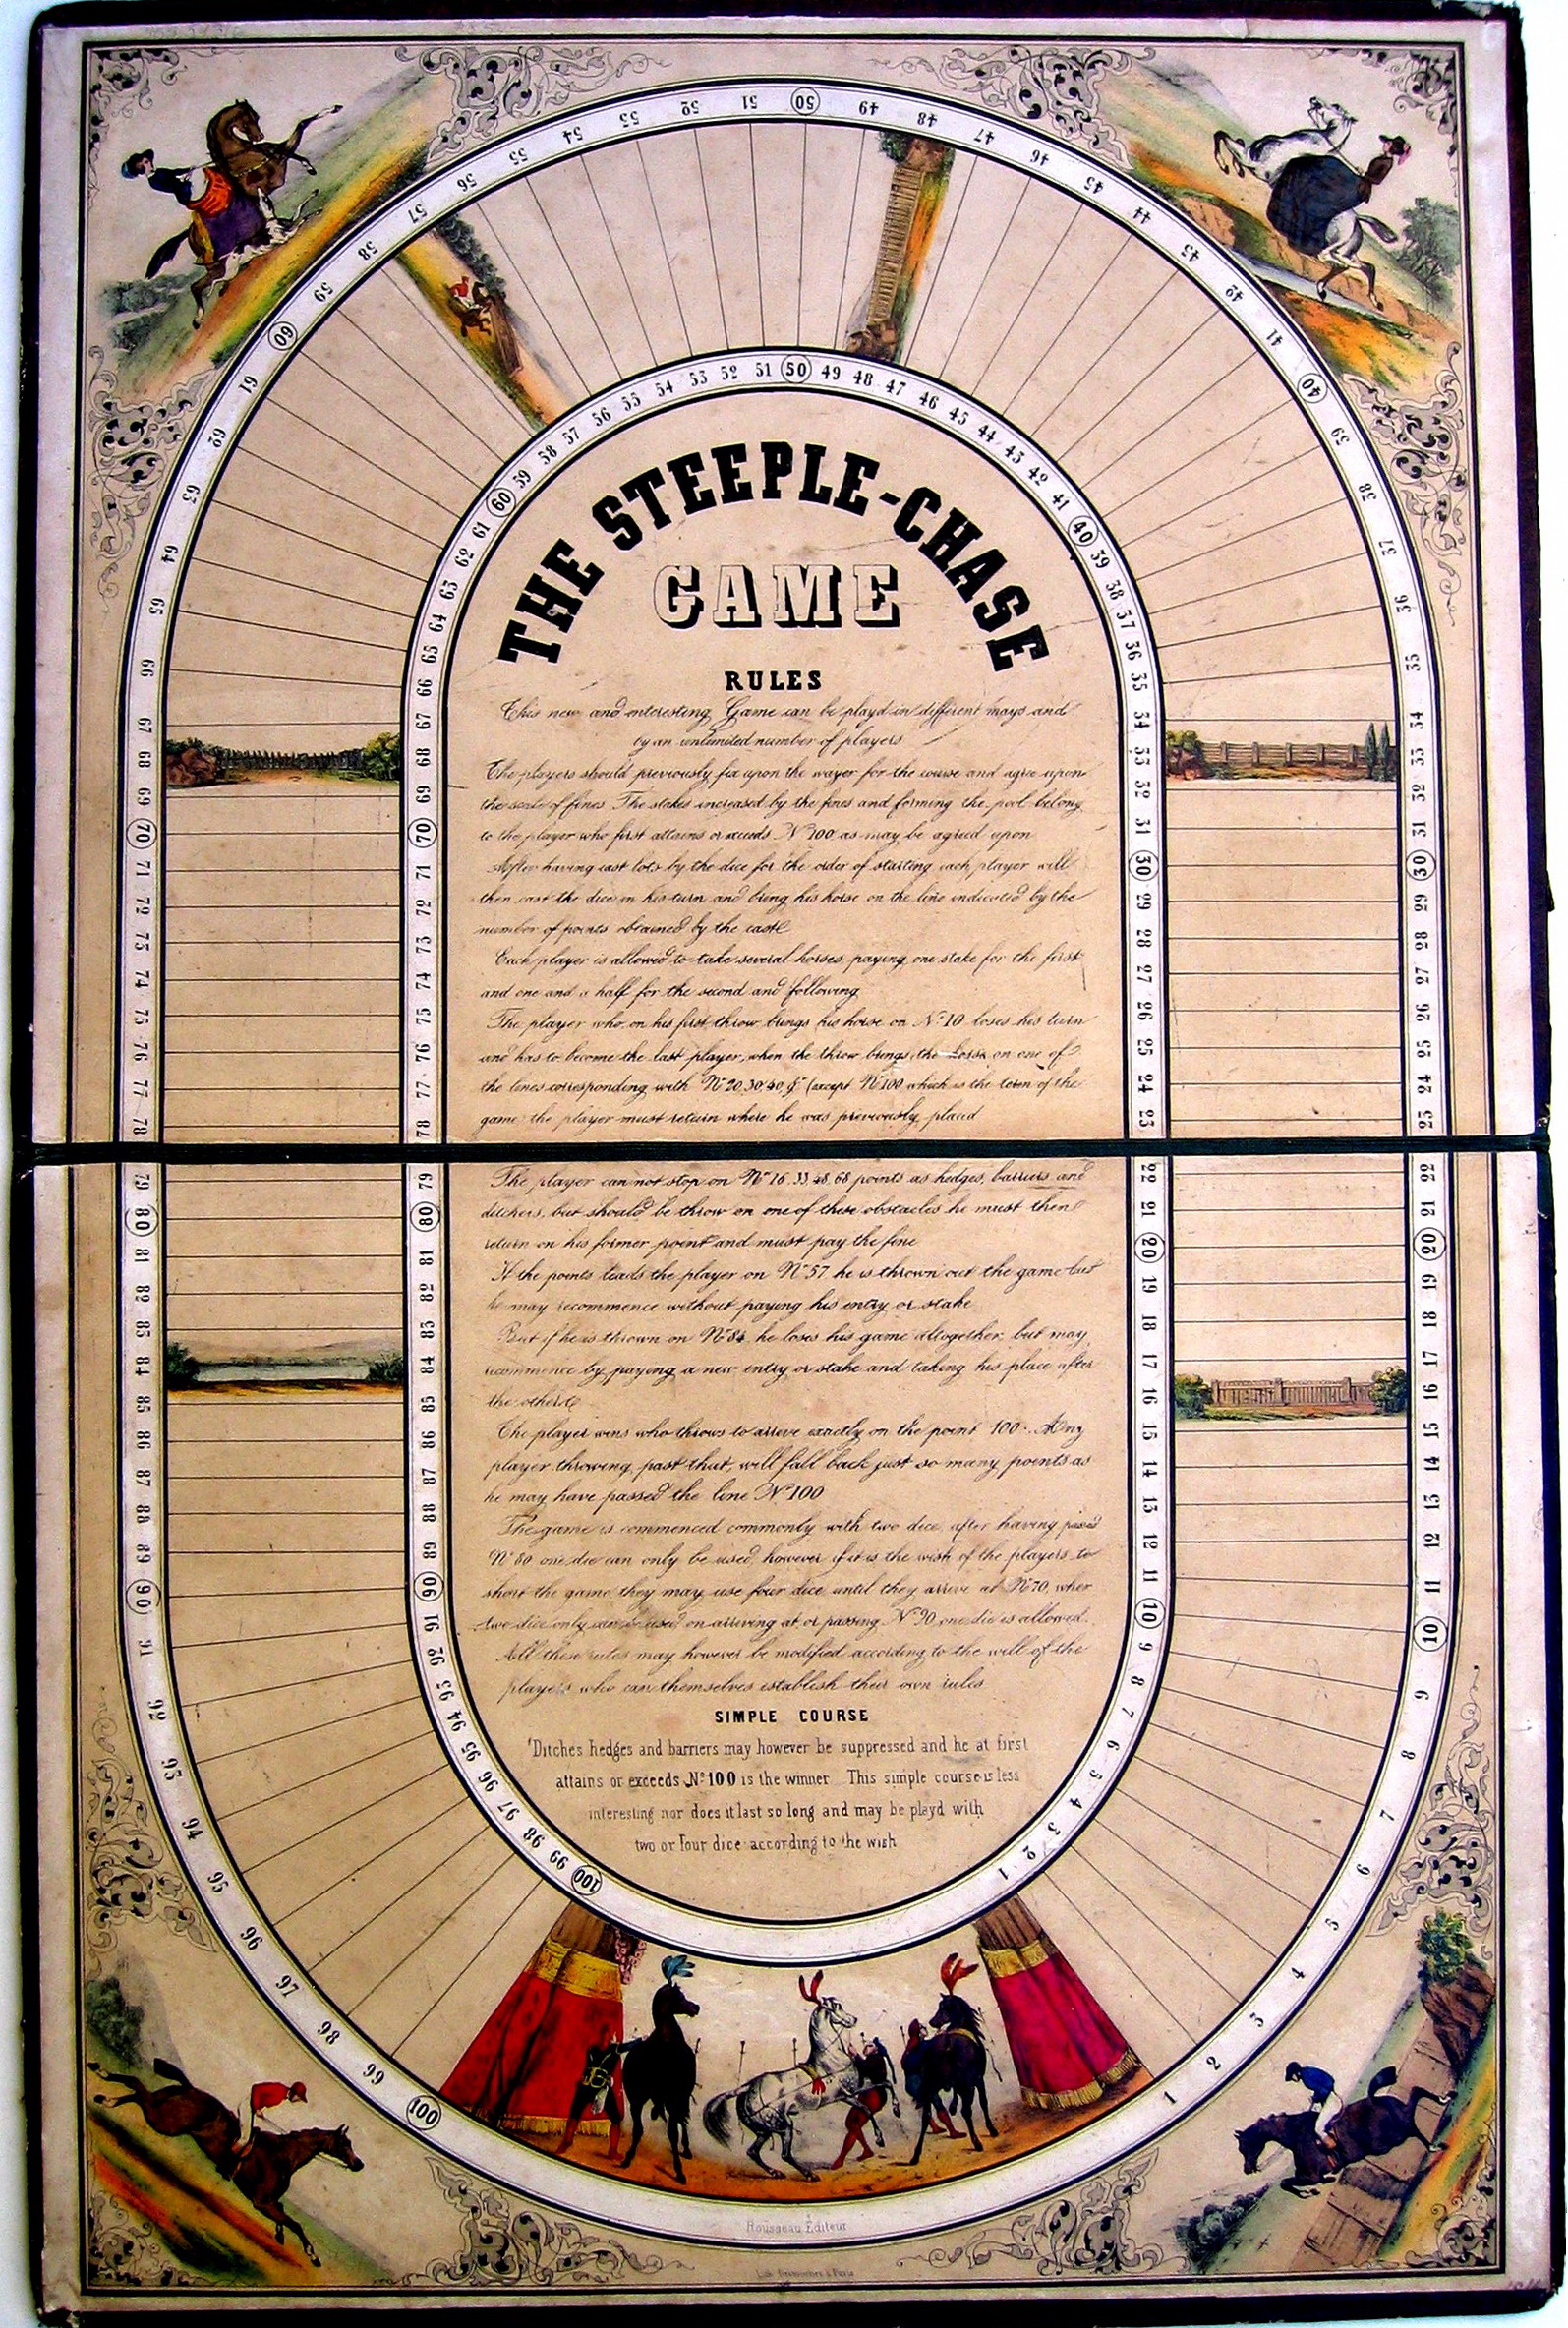 THE STEEPLE-CHASE
GAME
RULES
This new and enteresting Game can be playd in different ways and
by an unlimited number of players
The players should previously fix upon the wager for the course and agree upon
the scale of fines The stakes increased by the fines and forming the pool belong
to the player who first attains or exceeds Nº 100 as may be agreed upon
After having cast lots by the dice for the order of starting each player will
then cast the dice in his turn and bring his horse on the line indicated by the
number of points obtained by the cast
Each player is allowed to take several horses, paying one stake for the first
and one and a half for the second and following
The player who on his first throw brings his horse on Nº 10 loses his turn
and has to become the last player, when the throw brings the on one of
the lines corresponding with Nº 20, 30, 40, &c (except Nº 100 which is the term of the
game) the player must return where he was previously placed
The player can not stop on Nº 16, 33, 48, 68 points as hedges, barriers and
ditchers, but should be throw on one of these obstacles he must then
return on his former point and must pay the fine
If the points leads the player on Nº 57 he is thrown out the game but
he may recommence without paying his entry or stake
But if he is thrown on Nº 84 he loses his game altogether, but may
recommence by paying a new entry or stake and taking his place after
the others
The player wins who throws to arrive exactly on the point 100. Any
player throwing past that, will fall back just so many points as
he may have passed the line Nº 100
The game is commenced commonly with two dice, after having passed
Nº 80 one die can only be used, however if it is the wish of the players to
short the game they may use four dice until they arrive at Nº 70, when
two dice only can be used on arriving at or passing Nº 90 one die is allowed
All these rules may however be modified according to the will of the
players who can themselves establish their own rules
SIMPLE COURSE
Ditches hedges and barriers may however be suppressed and he at first
attains or exceeds Nº 100 is the winner This simple course is less
interesting nor does it last so long and may be playd with
two or four dice according to the wish
1 2 3 4 5 6 7 8 9 10 11 12 13 14 15 16 17 18 19 20 21 22 23 24 25 26 27 28 29 30 31 32 33 34 35 36 37 38 39 40 41 42 43 44 45 46 47 48 49 50 51 52 53 54 55 56 57 58 59 60 61 62 63 64 65 66 67 68 69 70 71 72 73 74 75 76 77 78 79 80 81 82 83 84 85 86 87 88 89 90 91 92 93 94 95 96 97 98 99 100
1 2 3 4 5 6 7 8 9 10 11 12 13 14 15 16 17 18 19 20 21 22 23 24 25 26 27 28 29 30 31 32 33 34 35 36 37 38 39 40 41 42 43 44 45 46 47 48 49 50 51 52 53 54 55 56 57 58 59 60 61 62 63 64 65 66 67 68 69 70 71 72 73 74 75 76 77 78 79 80 81 82 83 84 85 86 87 88 89 90 91 92 93 94 95 96 97 98 99 100
Rousseau Éditeur
à Paris